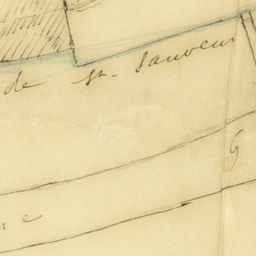 de St. Sauveur
G
e